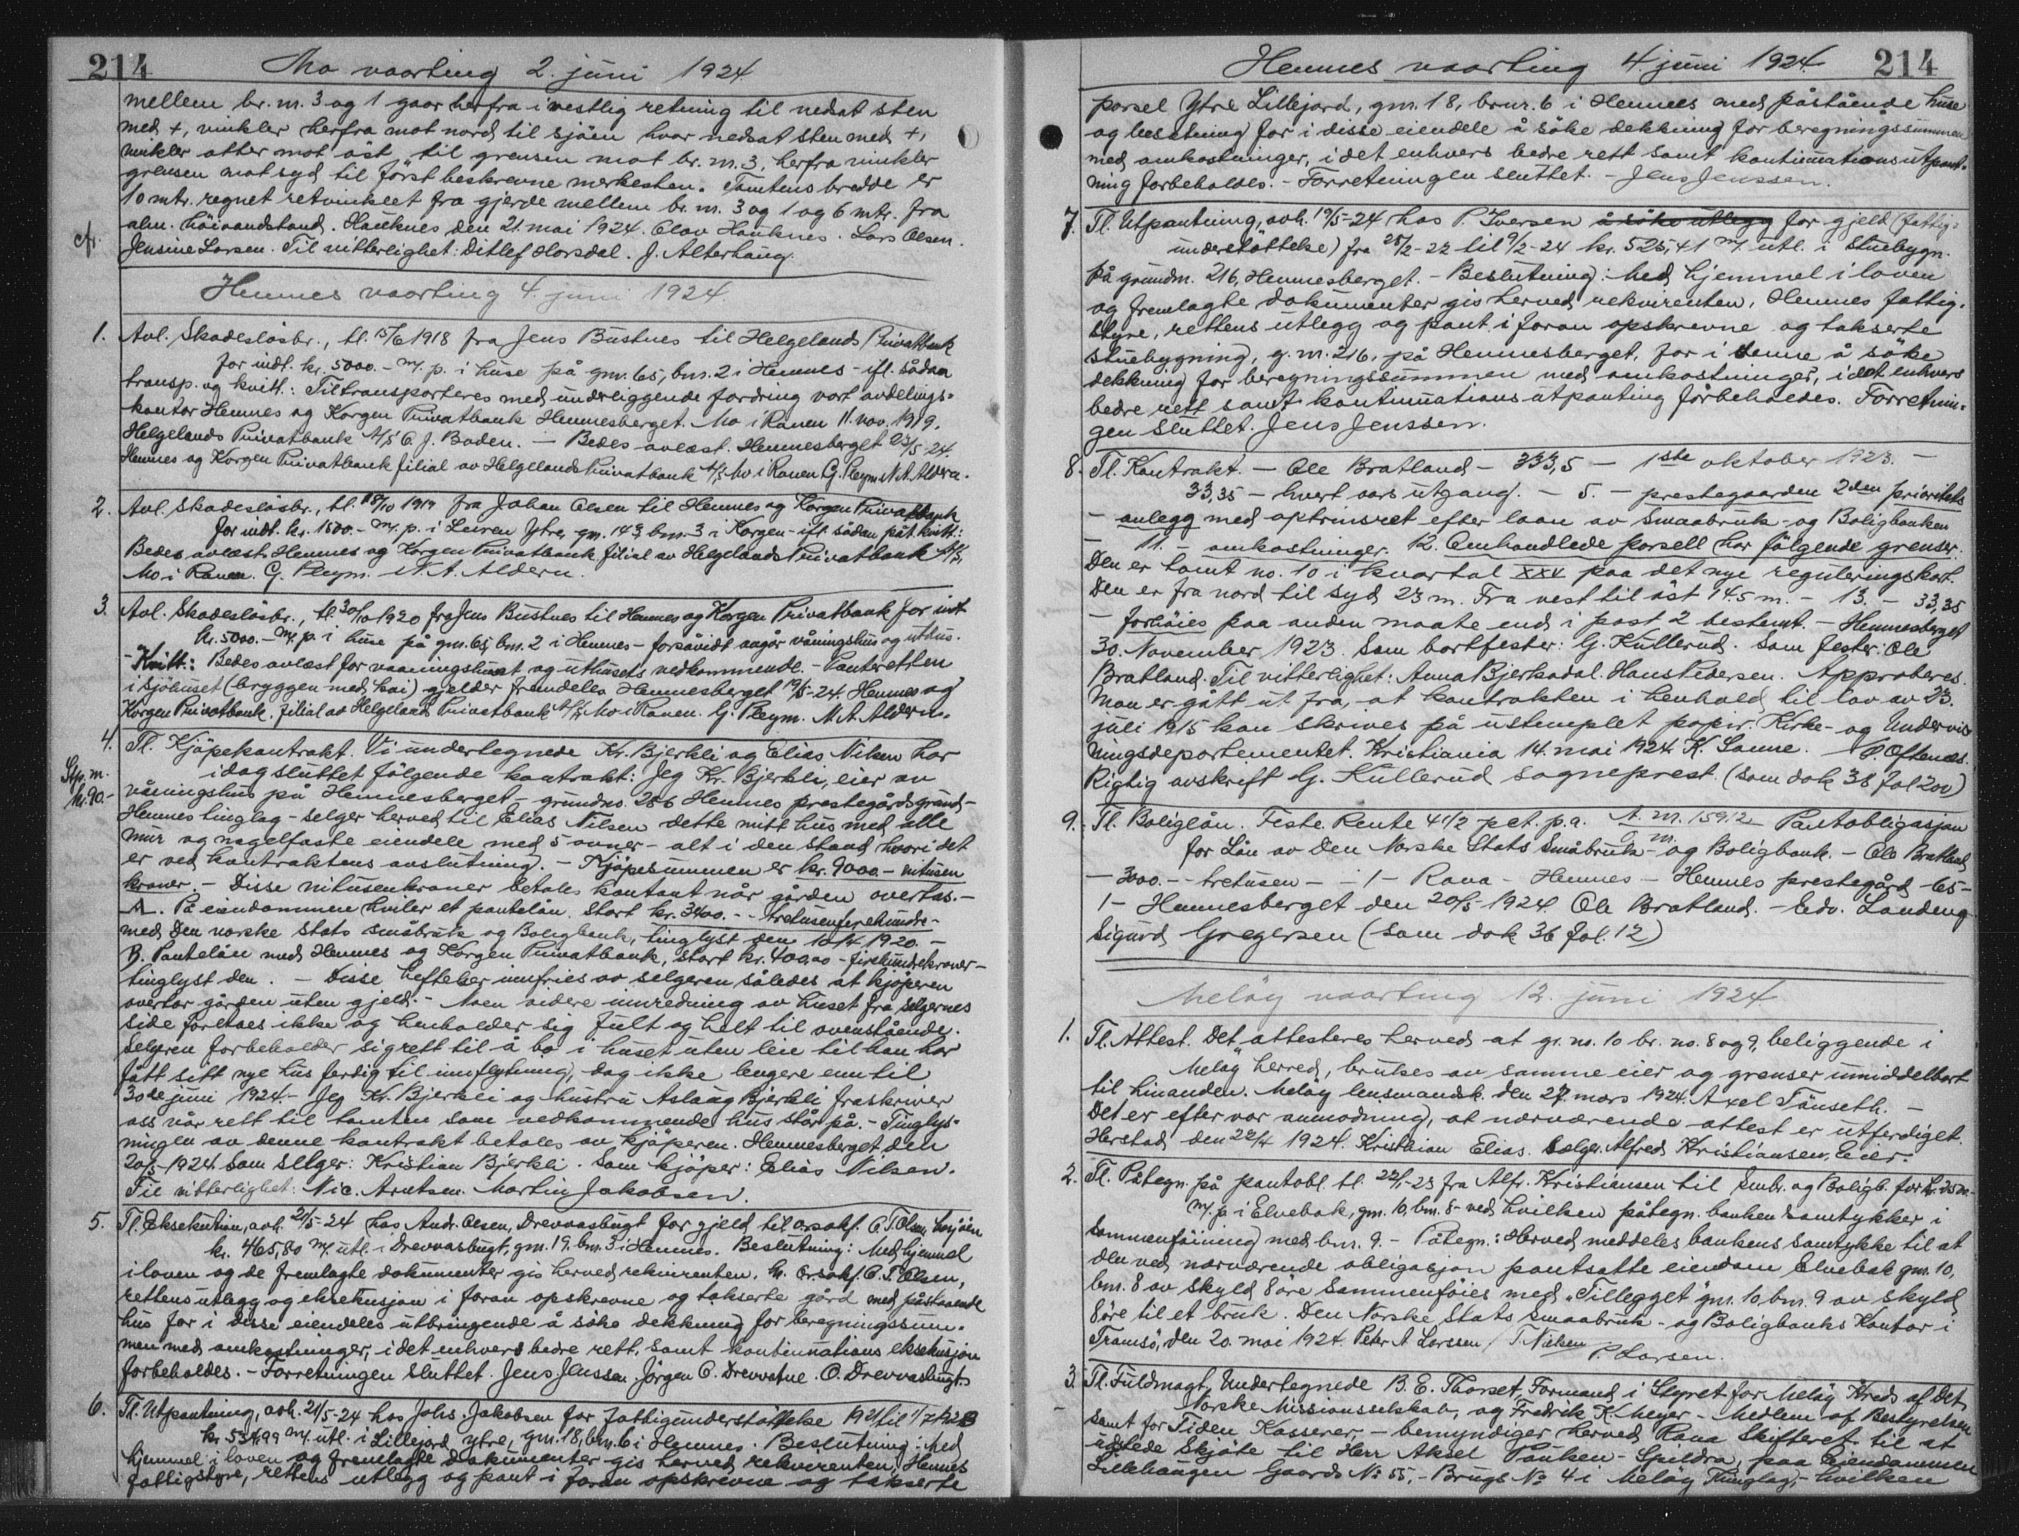 214
Mo vaarting 2. juni 1924
mellem br. nr. 3 og 1 gaar herfra i vestlig retning til nedsat sten
med +, vinkler herfra mot nord til sjöen hvor nedsat sten med +,
vinkler atter mot öst, til grensen mot br. nr. 3, herfra vinkler
grensen mot syd til först beskrevne merkesten. Tomtens bredde er
10 mtr. regnet retvinklet fra gjerde mellem br. nr. 3 og 1 og 6 mtr. fra
alm. höivandstand. Hauknes den 21. mai 1924. Olav Hauknes. Lars Olsen.
Jensine Larsen. Til vitterlighet: Ditlef Horsdal. J. Alterhaug.
Hemnes vaarting 4. juni 1924.
1. Avl. Skadeslösbr., tl. 15/6 1918 fra Jens Bustnes til Helgelands Privatbank
for indt. kr. 5000.- m/ p. i huse på gnr. 65, bnr. 2 i Hemnes - ifl. sådan
transp. og kvitt.: Tiltransporteres med underliggende fordring vort avdelings-
kontor Hemnes og Korgen Privatbank Hemnesberget. Mo i Ranen 11. nov. 1919.
Helgelands Privatbank A/S C. J. Boden. - Bedes avlæst. Hemnesberget 23/5-24.
Hemnes og Korgen Privatbank filial av Helgelands Privatbank A/S Mo i Ranen. G. Pleym. N. A. Aldern.
2. Avl. Skadeslösbr., tl. 18/10 1919 fra Johan Olsen til Hemnes og Korgen Privatbank
for indt. kr. 1500.- m/ p. i Leiren Ytre, gnr. 143, bnr. 3 i Korgen - ifl. sådan påt. kvitt.:
Bedes avlæst, Hemnes og Korgen Privatbank filial av Helgelands Privatbank A/S,
Mo i Ranen. G. Pleym. N. A. Aldern.
3. Avl. Skadeslösbr., tl. 30/10 1920 fra Jens Bustnes til Hemnes og Korgen Privatbank for indt.
kr. 5000.- m/ p. i huse på gnr. 65, bnr. 2 i Hemnes - forsåvidt angår våningshus og uthus.
- Kvitt.: Bedes avlæst for vaaningshuset og uthusets vedkommende. - Panteretten
i sjöhuset (bryggen med kai) gjelder fremdeles Hemnesberget 19/5-24. Hemnes og
Korgen Privatbank. filial av Helgelands Privatbank A/S Mo i Ranen. G. Pleym. N. A. Aldern.
4. Tl. Kjöpekontrakt. Vi undertegnede Kr. Bjerkli og Elias Nilsen har
Stp. m. kr. 90.-
idag sluttet fölgende kontrakt: Jeg Kr. Bjerkli, eier av
våningshus på Hemnesberget - grundnr. 256 Hemnes prestegårdsgrund -
Hemnes tinglag - selger herved til Elias Nilsen dette mitt hus med alle
mur og nagelfaste eiendele med 5 ovner - alt i den stand hvori det
er ved kontraktens avslutning. - Kjöpesummen er kr. 9000.- nitusen
kroner. - Disse nitusenkroner betales kontant når gården overtas. -
A. På eiendommen hviler et pantelån. Stort kr. 3400.- - tretusenfirehundre -
med den norske stats småbruk og Boligbank, tinglyst den 10/4 1920. -
B. Pantelån med Hemnes og Korgen Privatbank, stort kr. 400,00 - firehundrekroner -
tinglyst den . - Disse heftelser innfries av selgeren således at kjöperen
overtar gården uten gjeld. - Noen videre innredning av huset fra selgernes
side foretaes ikke og henholder sig fult og helt til ovenstående.
Selgeren forbeholder sig rett til å bo i huset uten leie til han har
fått sitt nye hus ferdig til innflytning, dog ikke lengere enn til
30de juni 1924. - Jeg Kr. Bjerkli og hustru Aslaug Bjerkli fraskriver
oss vår rett til tomten som vedkommende hus står på. - Tinglys-
ningen av denne kontrakt betales av kjöperen. Hemnesberget den
20/5 1924. Som selger: Kristian Bjerkli. Som kjöper: Elias Nilsen.
Til vitterlighet: Nic. Arntsen. Martin Jakobsen.
5. Tl. Eksekution, avh. 21/5-24 hos Andr. Olsen, Drevvasbugt for gjeld til orsakf. C. T. Olsen,
kr. 465,80 m/ utl. i Drevvasbugt, gnr. 19, bnr. 3 i Hemnes. Beslutning: Med hjemmel
i loven og de fremlagte dokumenter gis herved rekvirenten, hr. orsakf. C. T. Olsen,
rettens utlegg og eksekusjon i foran opskrevne og takserte gård med påstaaende
hus for i disse eiendeles utbringende å söke dekkning for beregningssum-
men med omkostninger, i det enhvers bedre rett, samt kontinuations eksekusjon
forbeholdes. - Forretningen sluttet. Jens Jenssen. Jörgen C. Drevvatne. O. Drevvasbugt.
6. Tl. Utpantning, avh. 21/5-24 hos Johs. Jakobsen for fattigunderstöttelse 1921 til 1/7 1923
kr. 534,99 m/ utl. i Lillejord ytre, gnr. 18, bnr. 6 i Hemnes. Beslutning: Med
hjemmel i loven og fremlagte dokumenter gis herved rekvirenten, Hemnes
fattigstyre, rettens utlegg og pant i foran opskrevne og takserte
Hemnes vaarting 4. juni 1924. 214
porsel Ytre Lillejord, gnr. 18, brnr. 6 i Hemnes med påstående huse
og besetning for i disse eiendele å söke dekkning for beregningssummen
med omkostninger, i det enhvers bedre rett samt kontinuationsutpant-
ning forbeholdes. - Forretningen sluttet. - Jens Jenssen.
7. Tl. Utpantning, avh. 19/5-24 hos P. Iversen å söke utlegg for gjeld (fattig-
understöttelse) fra 28/2-22 til 9/2-24 kr. 525,41 m/ utl. i Stuebygn.
på grundnr. 216, Hemnesberget. - Beslutning: Med hjemmel i loven
og fremlagte dokumenter gis herved rekvirenten, Hemnes fattig-
styre, rettens utlegg og pant i foran opskrevne og takserte
stuebygning, g. nr. 216, på Hemnesberget, for i denne å söke
dekkning for beregningssummen med omkostninger, i det enhvers
bedre rett samt kontinuationsutpanting forbeholdes. Forretnin-
gen sluttet. Jens Jenssen.
8. Tl. Kontrakt. - Ole Bratland - 333,5 - 1ste oktober 1923. -
33,35 - hvert aars utgang. - 5. - prestegaarden 2den prioritets
- anlegg med optrinsret efter laan av Smaabruk- og Boligbanken
- 11. - omkostninger. 12. Omhandlede porsell har fölgende grenser:
Den er tomt no. 10 i kvartal XXV paa det nye reguleringskart.
Den er fra nord til syd 23 m. Fra vest til öst 14.5 m. - 13. - 33,35
- forhöies paa anden maate end i post 2 bestemt. - Hemnesberget
30. November 1923. Som bortfester: G. Kullerud. Som fester: Ole
Bratland. Til vitterlighet: Anna Bjerkadal. Hans Pedersen. Approberes.
Man er gått ut fra, at kontrakten i henhold til lov av 23.
juli 1915 kan skrives på ustemplet papir. Kirke- og Undervis-
ningsdepartementet. Kristiania 14. mai 1924. K. Sanne. O. Oftenæs.
Rigtig avskrift G. Kullerud sogneprest. (Som dok 38 fol 200)
9. Tl. Boliglån. Feste. Rente 4 1/2 pct. p.a. A. nr. 15912 Pantobligasjon
for Lån av Den Norske Stats Småbruk- og Boligbank. - Ole Bratland
- 3000.- - tretusen - - 1 - Rana - Hemnes - Hemnes prestegård - 65 -
1 - Hemnesberget den 20/5 1924. Ole Bratland. - Edv. Landeng
Sigurd Gregersen (som dok 36 fol. 12)
Melöy vaarting 12. juni 1924.
1. Tl. Attest. Det attesteres herved at gr. no. 10 br. no. 8 og 9, beliggende i
Melöy herred, brukes av samme eier og grenser umiddelbart
til hinanden. Melöy lensmandsk. den 27. mars 1924. Axel Tönseth. -
Det er efter vor anmodning, at nærværende attest er utferdiget.
Herstad, den 22/4 1924. Kristian Elias. Sælger. Alfred Kristiansen. Eier.
2. Tl. Påtegn. på pantobl. tl. 22/1-23 fra Alfr. Kristiansen til Smbr. og Boligb. for
m/ p. i Elvebak, gnr. 10, bnr. 8 - ved hvilken påtegn. banken samtykker i
sammenföining med bnr. 9. - Påtegn.: Herved meddeles bankens samtykke til at
den ved nærværende obligasjon pantsatte eiendom Elvebak gnr. 10,
bnr. 8 av skyld 8 öre sammenföies med "Tillegget" gnr. 10, bnr. 9 av skyld
8 öre til et bruk. Den Norske Stats Smaabruk- og Boligbanks Kontor i
Tromsö, den 20. mai 1924. Peter A Larssen / T. Nielsen
P. Larsen.
3. Tl. Fuldmagt. Undertegnede B. E. Thorset, Formand i Styret for Melöy Kreds af det
Norske Missionsselskab, og Fredrik K. Meyer - Medlem af Bestyrelsen
samt for Tiden Kasserer - bemyndiger herved Rana Skifteret til at
udstede Skjöte til Herr Aksel Paulsen - Spildra, paa Eiendommen
Lillehaugen Gaards No 55, - Brugs No 4 i Melöy Thinglag, - hvilken